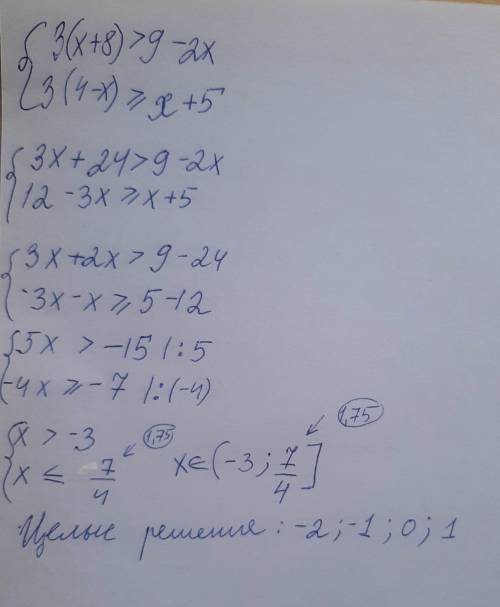 { 3(x+8) > 9 - 2x
{ 3(4-x) ⩾ x + 5
{ 3x + 24 > 9 - 2x
{ 12 - 3x ⩾ x + 5
{ 3x + 2x > 9 - 24
{ -3x - x ⩾ 5 - 12
{ 5x > -15 | : 5
{ -4x ⩾ -7 | : (-4)
{ x > -3
{ x ⩽ 7/4 1,75 x ∈ (-3 ; 7/4] 1,75
Целые решения : -2 ; -1 ; 0 ; 1